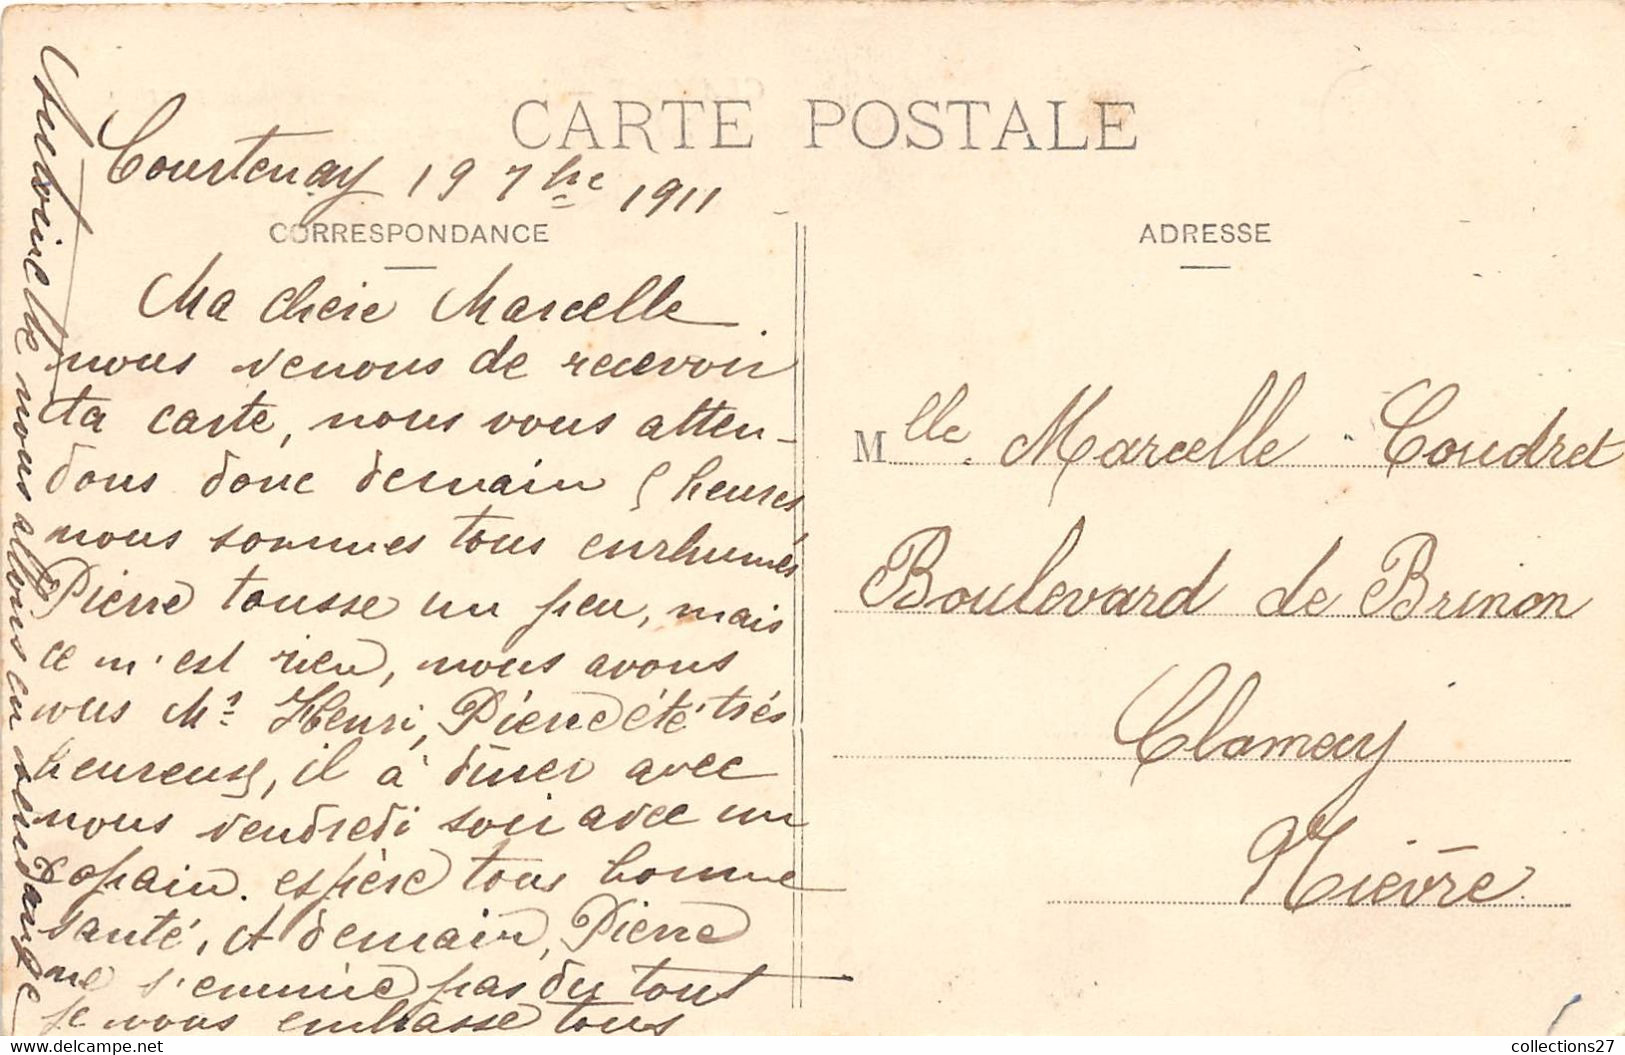 CARTE POSTALE
Courtenay 19 7bre 1911
CORRESPONDANCE
Ma chère Marcelle
nous venons de recevoir
ta carte, nous vous atten-
dons donc demain 5 heures
nous sommes tous enrhumés
Pierre tousse un peu, mais
ce n'est rien, nous avons
vus Mr Henri, Pierre été très
heureux, il à diner avec
nous vendredi soir avec un
copain. espère tous bonne
santé, A demain, Pierre
ne s'ennuie pas du tout
je vous embrasse tous
nous allons en vendange
ADRESSE
Mlle Marcelle Coudret
Boulevard de Brinon
Clamecy
Nièvre
collections27